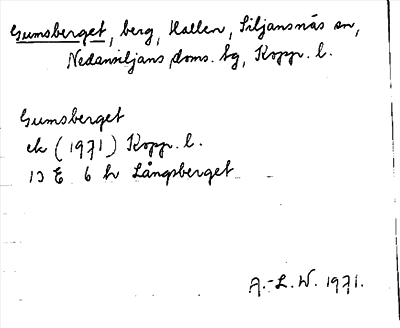 Gumsberget, berg, Hallen, Siljansnäs sn,
Nedansiljans doms. tg, Kopp. l.
Gumsberget
ek (1971) Kopp. l.
13 E 6 h Långsberget
A.-L. W. 1971.